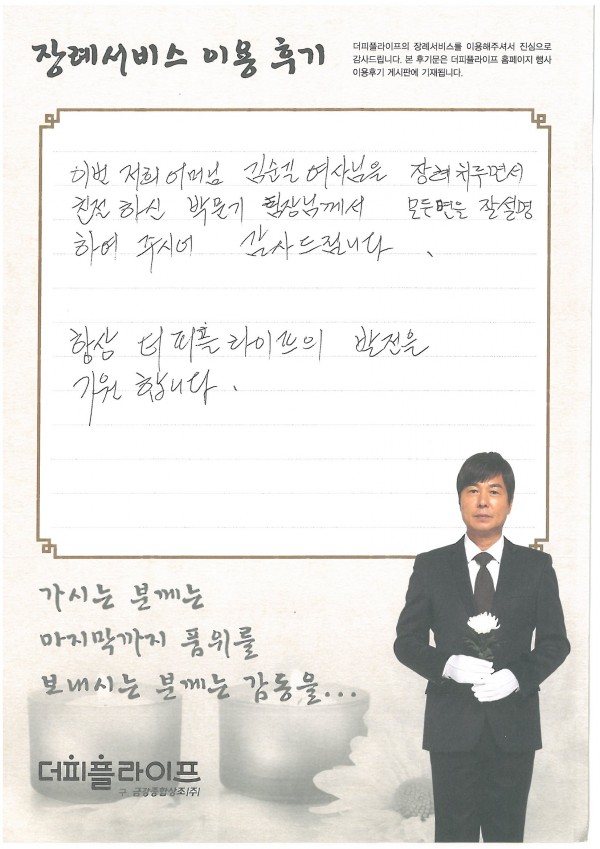 장례서비스 이용 후기
더피플라이프의 장례서비스를 이용해주셔서 진심으로
감사드립니다. 본 후기문은 더피플라이프 홈페이지 행사
이용후기 게시판에 기재됩니다.
이번 저희 어머님 김순길 여사님을 장례 치루면서
친절 하신 박문기 팀장님께서 모든면을 잘설명
하여 주시어 감사드립니다.
항상 더피플라이프의 발전을
기원 합니다.
가시는 분께는
마지막까지 품위를
보내시는 분께는 감동을...
더피플라이프
구. 금강종합상조(주)